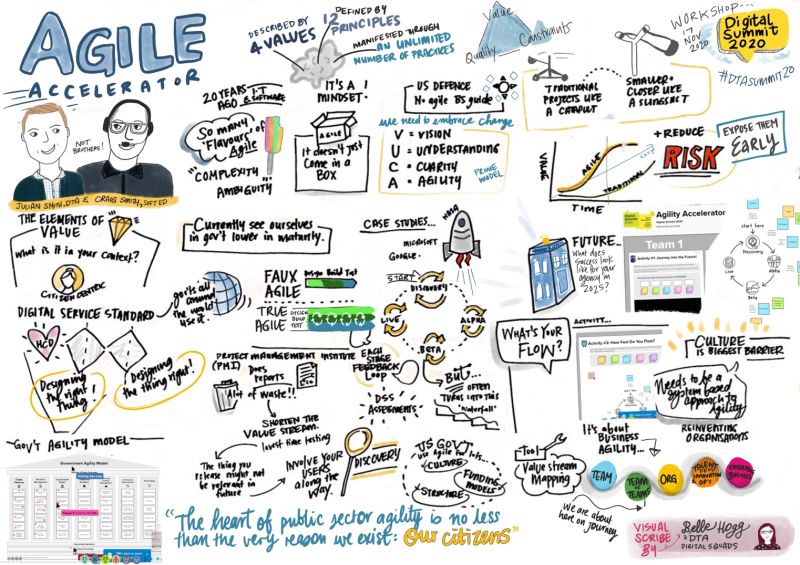 AGILE
ACCELERATOR
NOT
BROTHERS!
JULIAN SMITH, DTA & CRAIG SMITH, SOFTED
DESCRIBED BY
4 VALUES
12
DEFINED BY
PRINCIPLES
MANIFESTED THROUGH
AN UNLIMITED
NUMBER OF PRACTICES
Value
Quality
Constraints
WORKSHOP...
17
NOV
2020
Digital
Summit
2020
#DTASUMMIT20
20 YEARS
AGO
I.T
& SOFTWARE
So many
'Flavours' of
Agile
"COMPLEXITY
AMBIGUITY"
IT'S A
MINDSET!
AGILE
It doesn't just
come in a
BOX
US DEFENCE
No agile BS guide
We need to embrace change
V = VISION
U = UNDERSTANDING
C = CLARITY
A = AGILITY
PRIME
MODEL
TRADITIONAL
PROJECTS LIKE
A CATAPULT
SMALLER +
CLOSER LIKE
A SLINGSHOT
VALUE
AGILE
TRADITIONAL
TIME
+ REDUCE
RISK
EXPOSE THEM
EARLY
THE ELEMENTS OF
VALUE
What is it in your context?
CITIZEN CENTRIC
Currently see ourselves
in gov't lower in maturity.
CASE STUDIES...
NASA
MICROSOFT
GOOGLE
FUTURE...
What does
success look
like for your
agency in
2025?
Agility Accelerator
Team 1
Activity #1: Journey into the Future!
start here
Discovery
Alpha
Beta
Live
DIGITAL SERVICE STANDARD
HCD
Designing
the right
thing!
Designing
the thing right!
gov'ts all
around
the world
use it.
FAUX
AGILE
Design Build Test
TRUE
AGILE
DESIGN
BUILD
TEST
START
DISCOVERY
ALPHA
BETA
LIVE
EACH
STAGE
FEEDBACK
LOOP
BUT...
OFTEN
TURNS INTO THIS
"Waterfall"
WHAT'S YOUR
FLOW?
ACTIVITY...
Activity #2: How Fast Do You Flow?
CULTURE
IS BIGGEST BARRIER
Needs to be a
system based
approach to
Agility
REINVENTING
ORGANISATIONS
PROJECT MANAGEMENT INSTITUTE
(PMI)
Does
reports
A lot of waste!!
SHORTEN THE
VALUE STREAM.
invest time testing
The thing you
release might not
be relevant in
future
INVOLVE YOUR
USERS
ALONG THE
WAY.
DISCOVERY
DSS
ASSESSMENTS
US GOV'T
use Agile for lots...
CULTURE
FUNDING
MODELS
STRUCTURE
TOOL
Value stream
Mapping
It's about
BUSINESS
AGILITY...
TEAM
TEAM OF
TEAMS
ORG
We are about
here on journey
GOV'T AGILITY MODEL
Government Agility Model
"The heart of public sector agility is no less
than the very reason we exist: Our citizens"
VISUAL
SCRIBE
BY
Belle Hogg
@ DTA
DIGITAL SQUADS